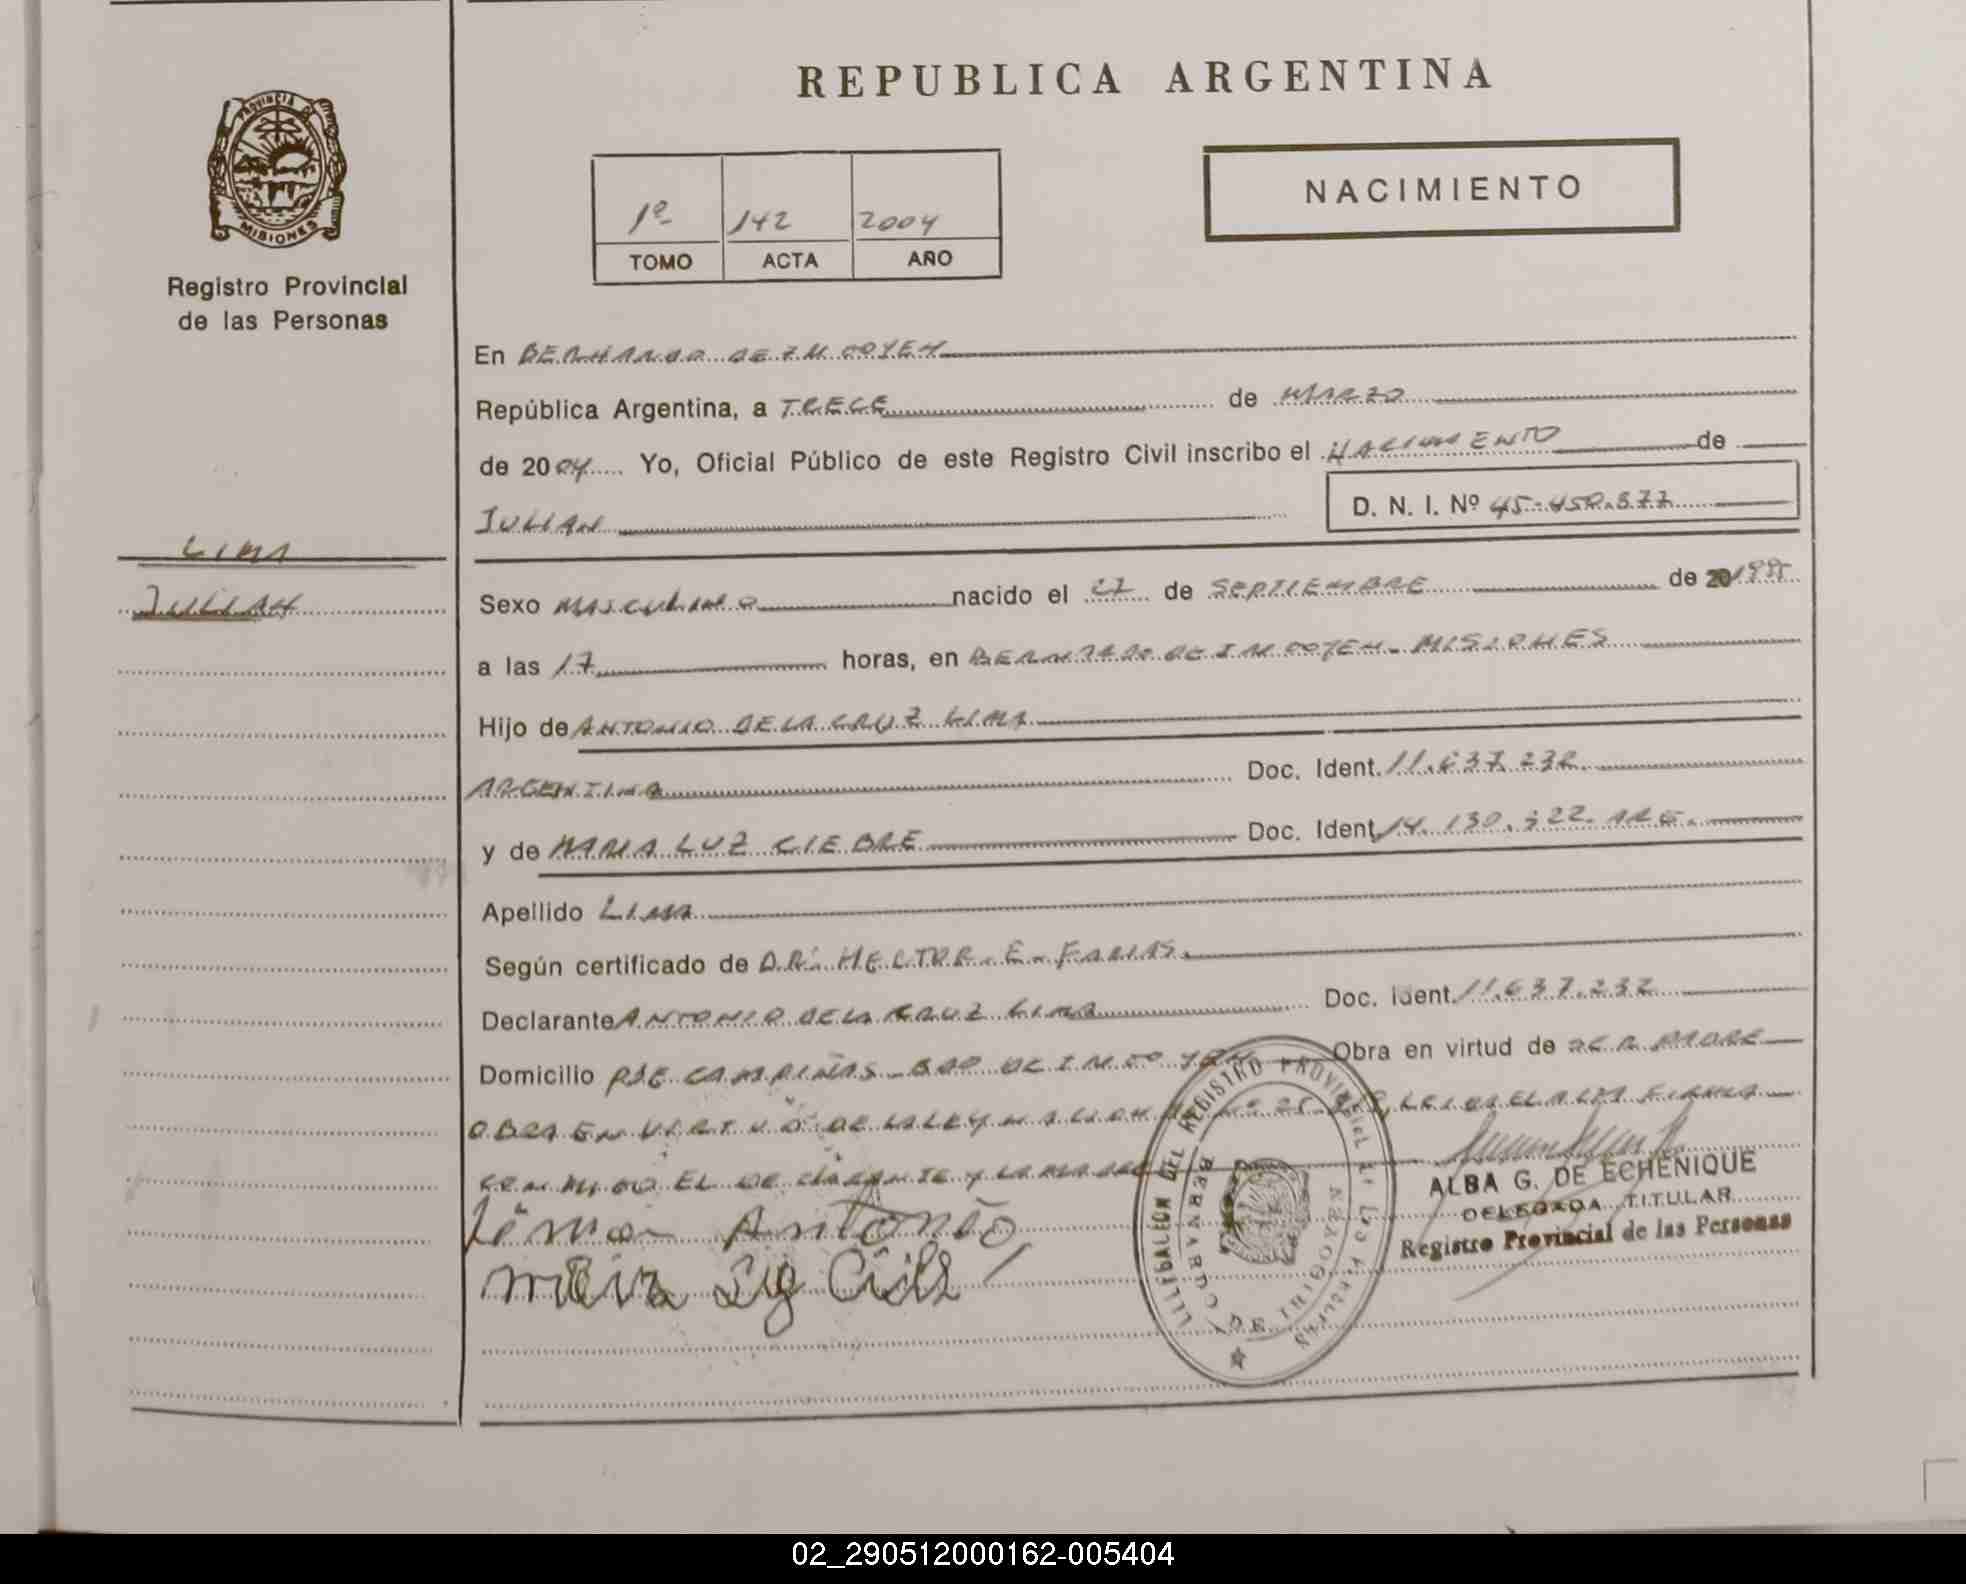 REPUBLICA ARGENTINA
PROVINCIA DE
MISIONES
Registro Provincial
de las Personas
1º 142 2004
TOMO ACTA AÑO
NACIMIENTO
En BERNARDO DE IRIGOYEN
República Argentina, a TRECE de MARZO
de 2004 Yo, Oficial Público de este Registro Civil inscribo el NACIMIENTO de
JULIAN D. N. I. Nº
LIMA
JULIAN
Sexo MASCULINO nacido el 27 de SEPTIEMBRE de 20
a las 17 horas, en BERNARDO DE IRIGOYEN - MISIONES
Hijo de ANTONIO DE LA CRUZ LIMA
ARGENTINA Doc. Ident. 11.637.232
y de MARIA LUZ CIEBRE Doc. Ident 14.130. ARG.
Apellido LIMA
Según certificado de DR. HECTOR E. FARIAS
Declarante ANTONIO DE LA CRUZ LIMA Doc. Ident. 11.637.232
Domicilio PJE CAMPIÑAS - BDO DE IRIGOYEN Obra en virtud de SER PADRE
OBRA EN VIRTUD DE LA LEY NACIONAL Nº 25. LEIDA EL ACTA FIRMAN
CONMIGO EL DECLARANTE Y LA MADRE
Lima Antonio
DEL REGISTRO PROVINCIAL DE LAS PERSONAS
BERNARDO DE IRIGOYEN
ALBA G. DE ECHENIQUE
DELEGADA TITULAR
Registro Provincial de las Personas
02_290512000162-005404